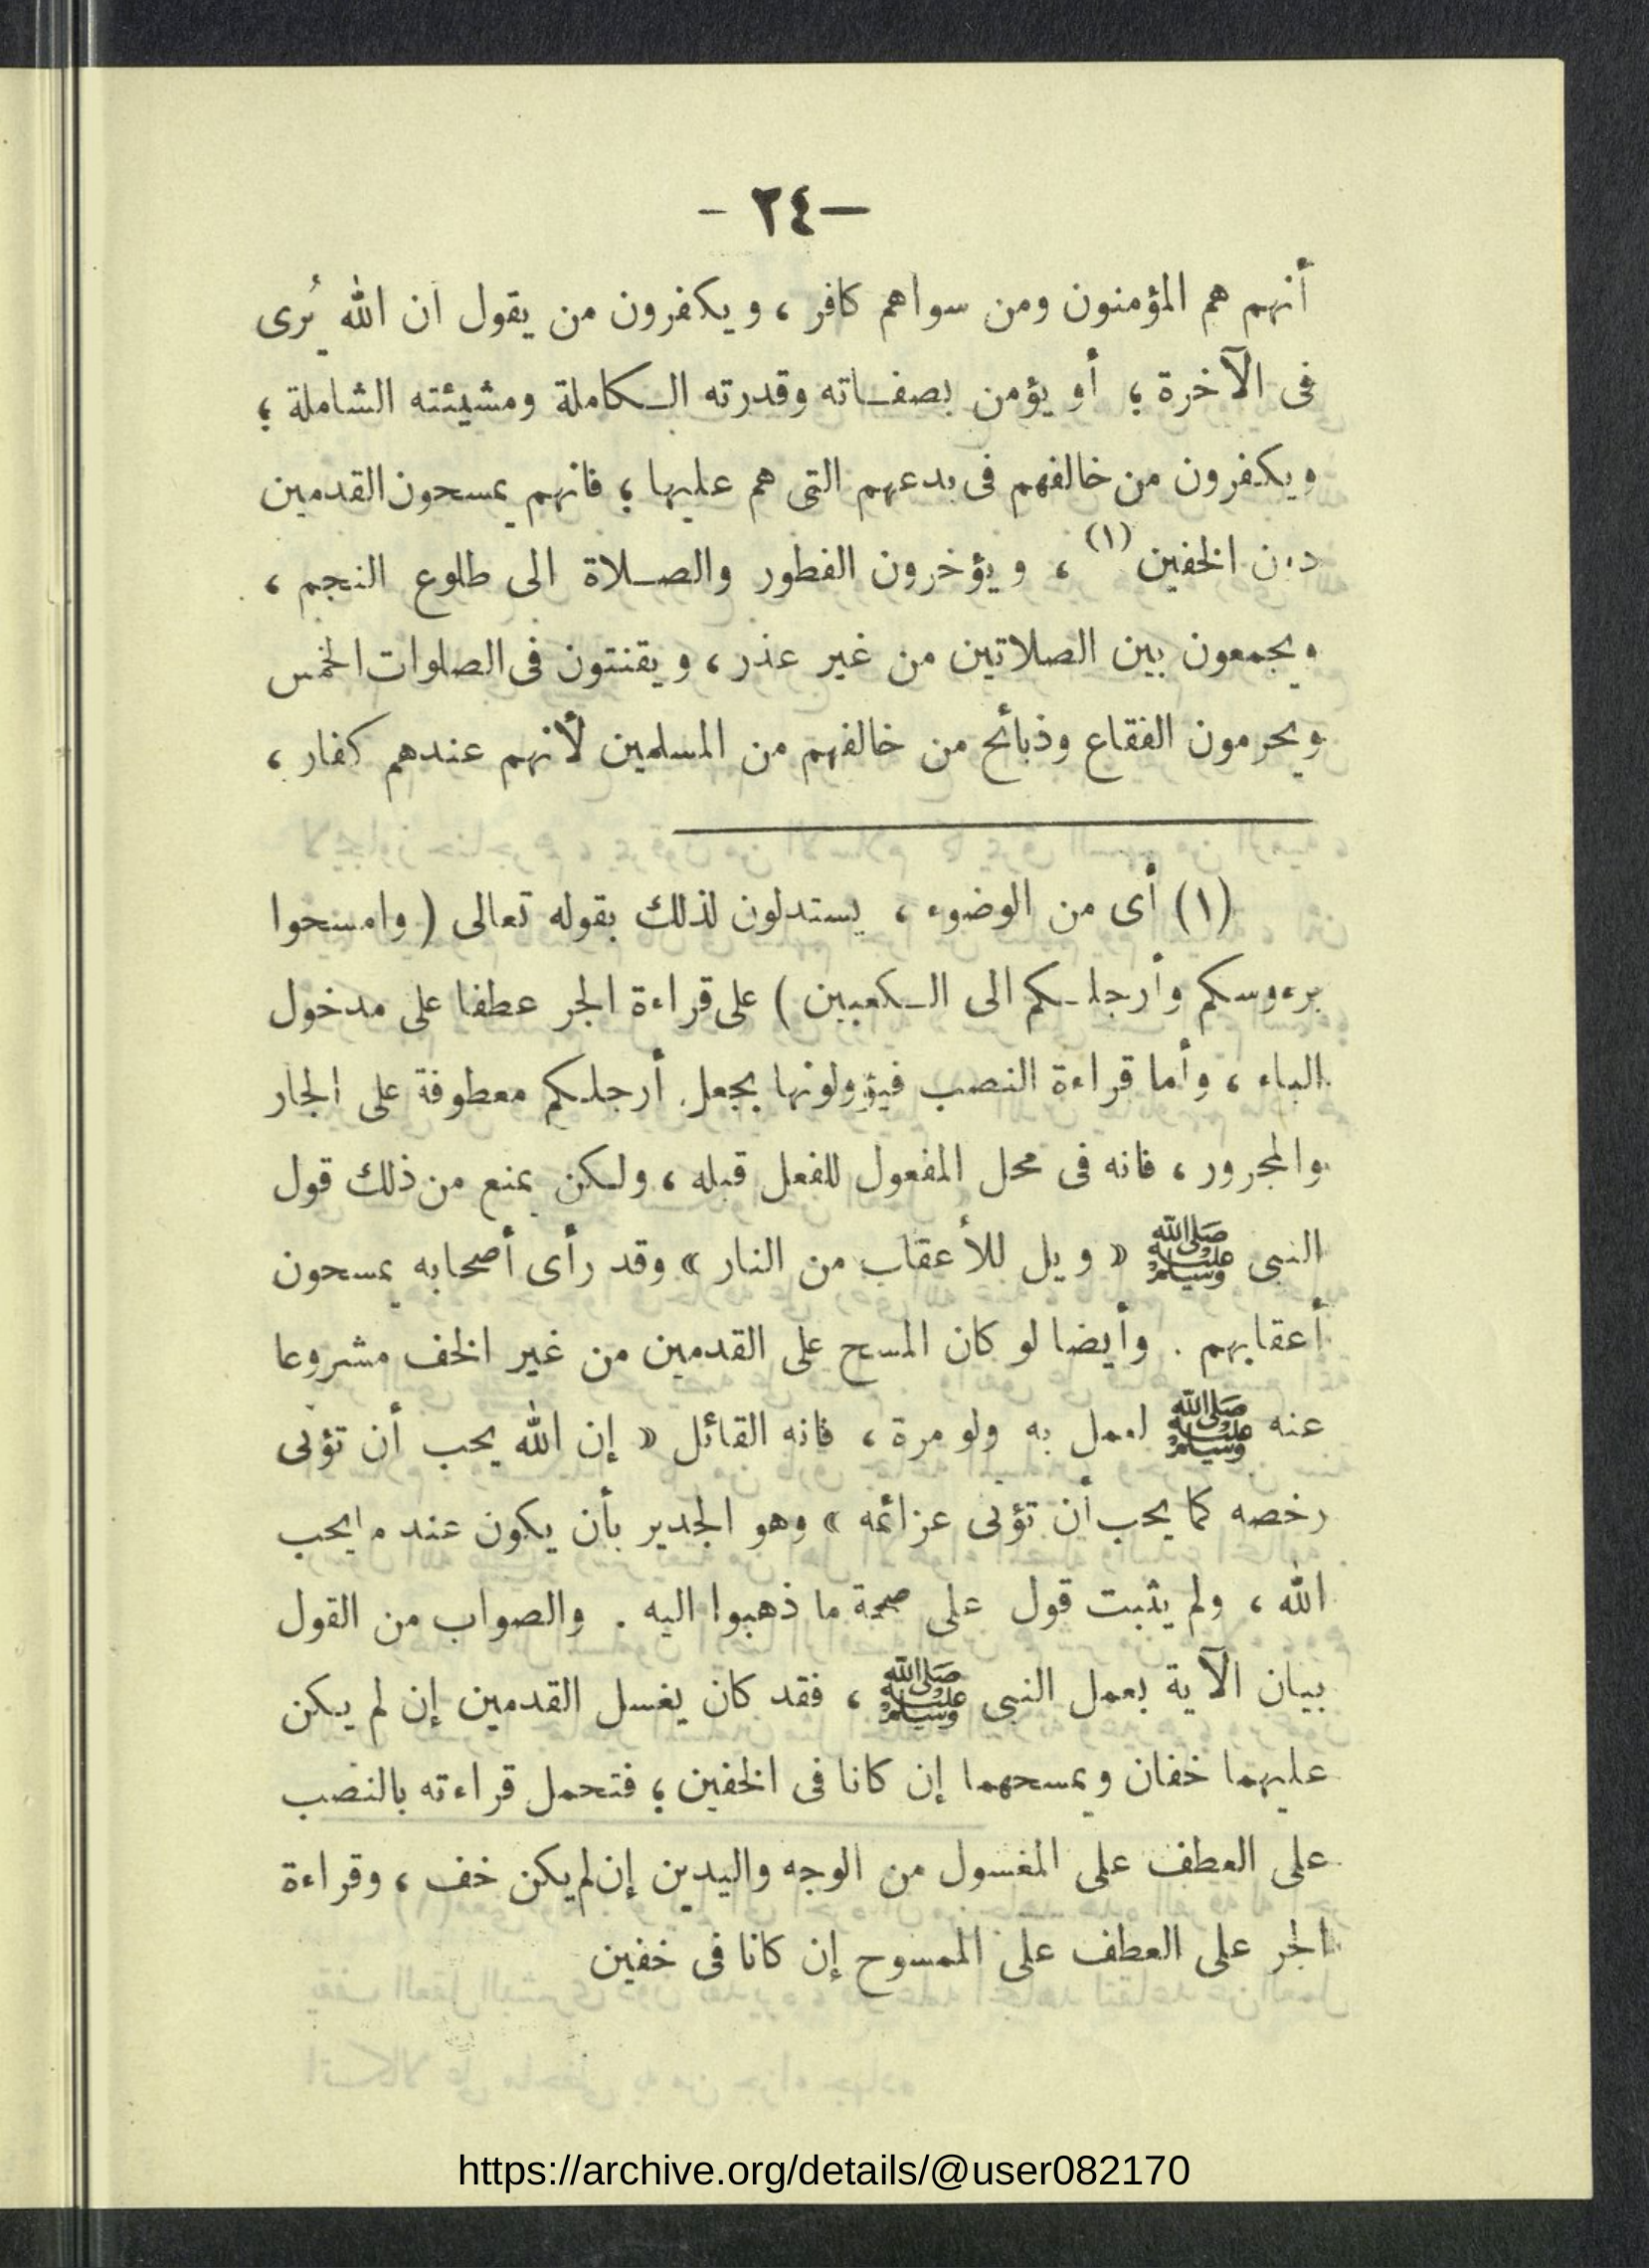 —٢٤ -
أنهم هم المؤمنون ومن سواهم كافر ، ويكفرون من يقول ان الله يُرى
فى الآخرة ؛ أو يؤمن بصفاته وقدرته الكاملة ومشيئته الشاملة ؛
ويكفرون من خالفهم فى بدعهم التى هم عليها ؛ فانهم يمسحون القدمين
دون الخفين (١) ، ويؤخرون الفطور والصلاة الى طلوع النجم ،
ويجمعون بين الصلاتين من غير عذر ، ويقنتون فى الصلوات الخمس
ويحرمون الفقاع وذبائح من خالفهم من المسلمين لأنهم عندهم كفار ،
(١) أى من الوضوء ، يستدلون لذلك بقوله تعالى ( وامسحوا
برءوسكم وأرجلكم الى الكعبين ) على قراءة الجر عطفا على مدخول
الباء ، وأما قراءة النصب فيؤولونها بجعل أرجلكم معطوفة على الجار
والمجرور ، فانه فى محل المفعول للفعل قبله ، ولكن يمنع من ذلك قول
النبى ﷺ « ويل للأعقاب من النار » وقد رأى أصحابه يمسحون
أعقابهم . وأيضا لو كان المسح على القدمين من غير الخف مشروعا
عنه ﷺ لعمل به ولو مرة ، فانه القائل « إن الله يحب أن تؤتى
رخصه كما يحب أن تؤتى عزائمه » وهو الجدير بأن يكون عند ما يحب
الله ، ولم يثبت قول على صحة ما ذهبوا اليه . والصواب من القول
بيان الآية بعمل النبى ﷺ ، فقد كان يغسل القدمين إن لم يكن
عليهما خفان ويمسحهما إن كانا فى الخفين ؛ فتحمل قراءته بالنصب
على العطف على المغسول من الوجه واليدين إن لم يكن خف ، وقراءة
الجر على العطف على الممسوح إن كانا فى خفين
https://archive.org/details/@user082170